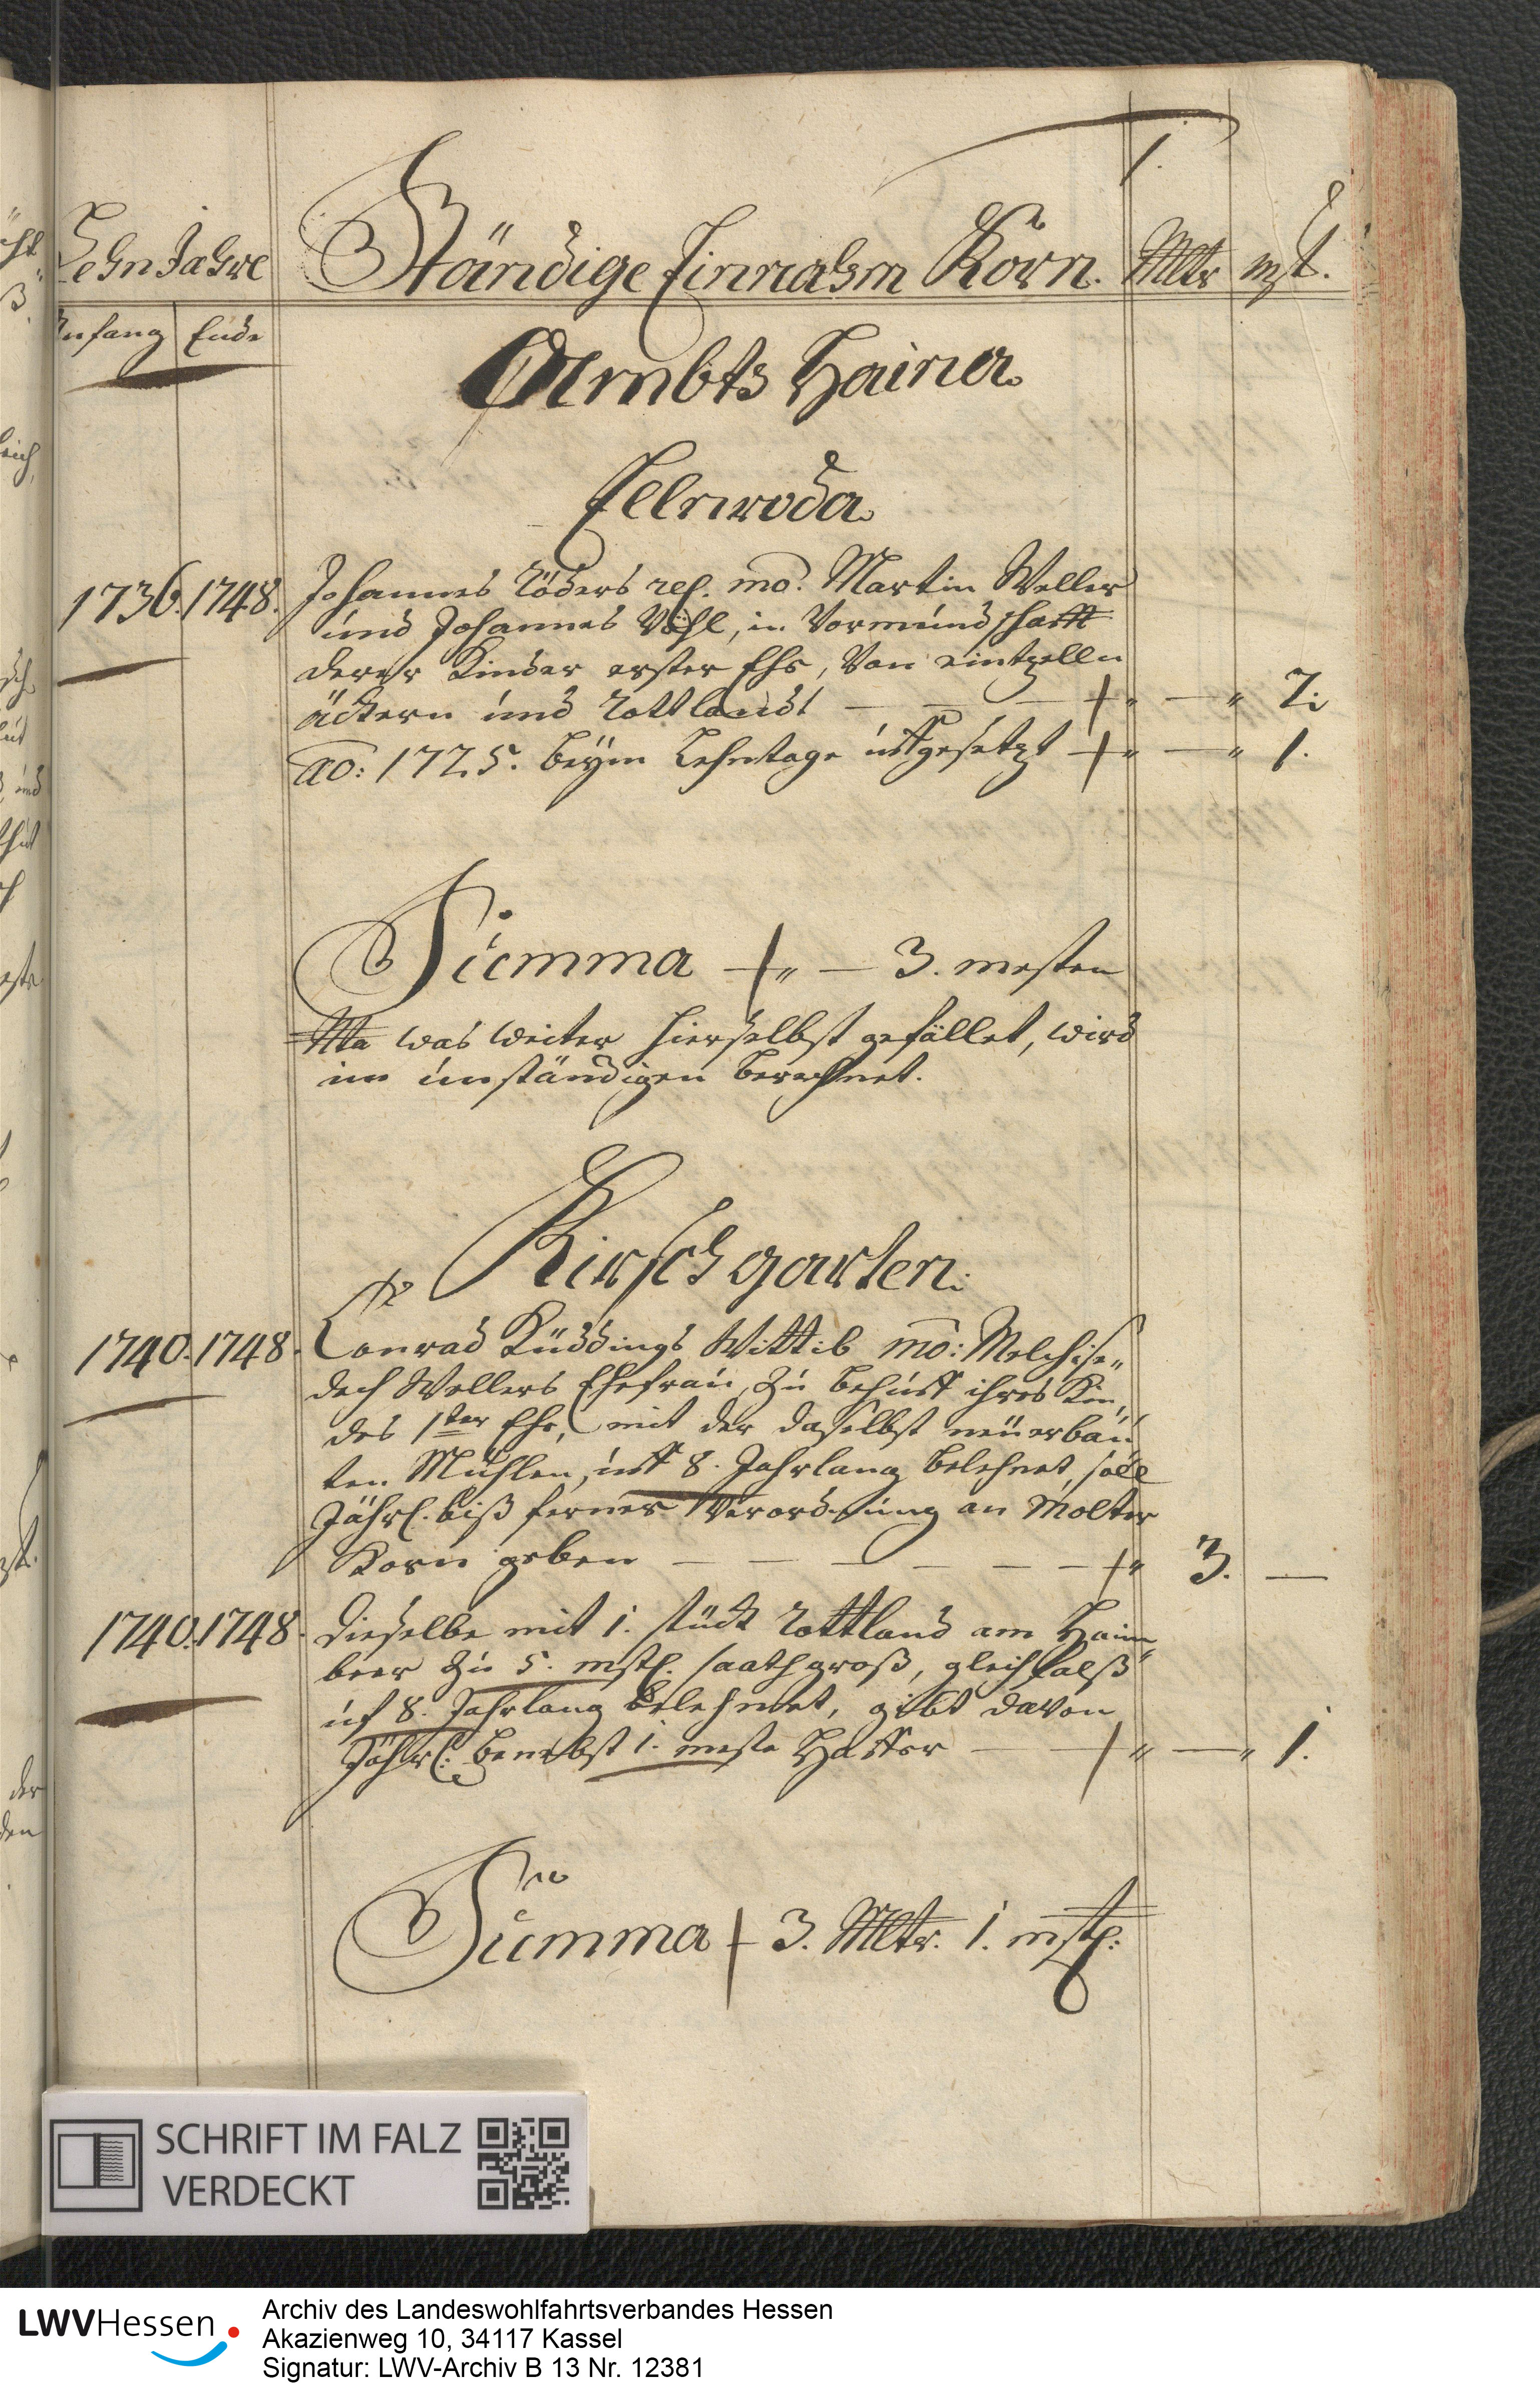 1.
Lehn Jahre
Ständige Einnahm Korn.
Mltr
mst.
Anfang
Ende
Ambts Haina.
Ellnroda
1736. 1748. Johannes Röders rel. mo. Martin Weller
und Johannes Vöhl, in Vormundschafft
derer Kinder erster Ehe, Von eintzelln
äckern und Rottlandt — — — + „ — „ 2.
ao: 1725. beÿm Lehntage uffgesetzt + „ — „ 1.
Summa + „ — 3. mesten
Nta was weiter hierselbst gefället, wird
im unständigen berechnet.
Kirschgarten.
1740. 1748. Conrad Küddings Wittib mo: Melchise„
dech Wellers Ehefrau, Zu behuff ihres Kin„
des 1ter Ehe, mit der daselbst neüerbau„
ten Mühlen, uff 8. Jahrlang belehnet, soll
Jährl. biß ferner Verordnung an Molter
Korn geben — — — — — — + „ 3. —
1740. 1748. Dieselbe mit 1. stück Rottland am Hain„
beer Zu 5. mstl. saath groß, gleichfalß
uf 8. Jahrlang belehnet, gibt davon
Jährl: benebst 1. meste Haffer — — + „ — „ 1.
Summa + 3. Mltr. 1. mstl:
SCHRIFT IM FALZ
VERDECKT
LWVHessen
Archiv des Landeswohlfahrtsverbandes Hessen
Akazienweg 10, 34117 Kassel
Signatur: LWV-Archiv B 13 Nr. 12381